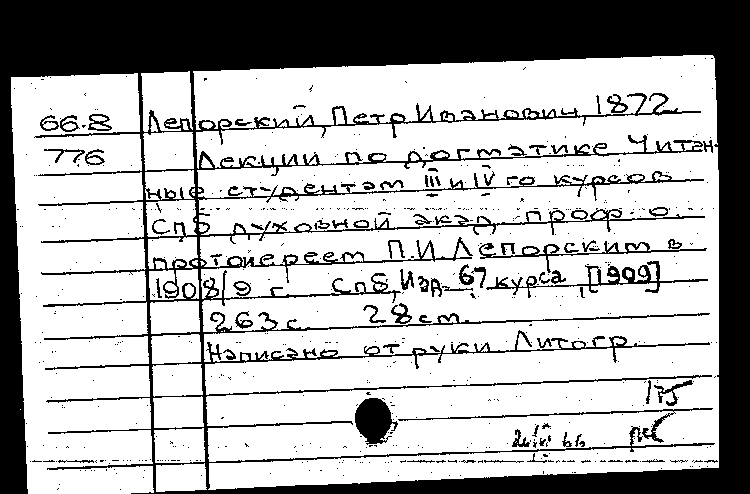 66.8 Лепорский, Петр Иванович, 1872
776 Лекции по догматике Читан-
ные студентам III и IV го курсов
Спб духовной акад. проф. о.
протоиереем П.И. Лепорским в
1908/9 г. Спб, Изд. 67 курса, [1909]
263 с. 28 cm.
Написано от руки Литогр.
175